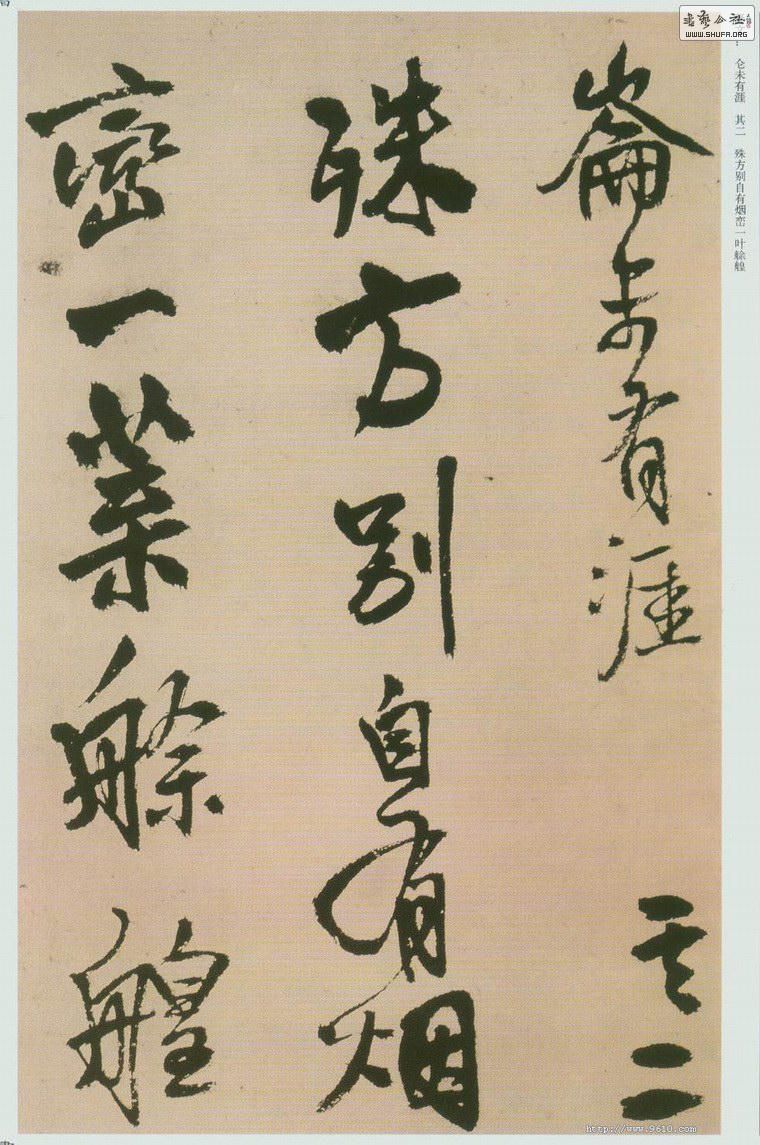 崙未有涯 其二
殊方別自有烟
巒一葉艅艎
仑未有涯 其二 殊方别自有烟峦一叶艅艎
WWW.SHUFA.ORG
http://www.9610.com